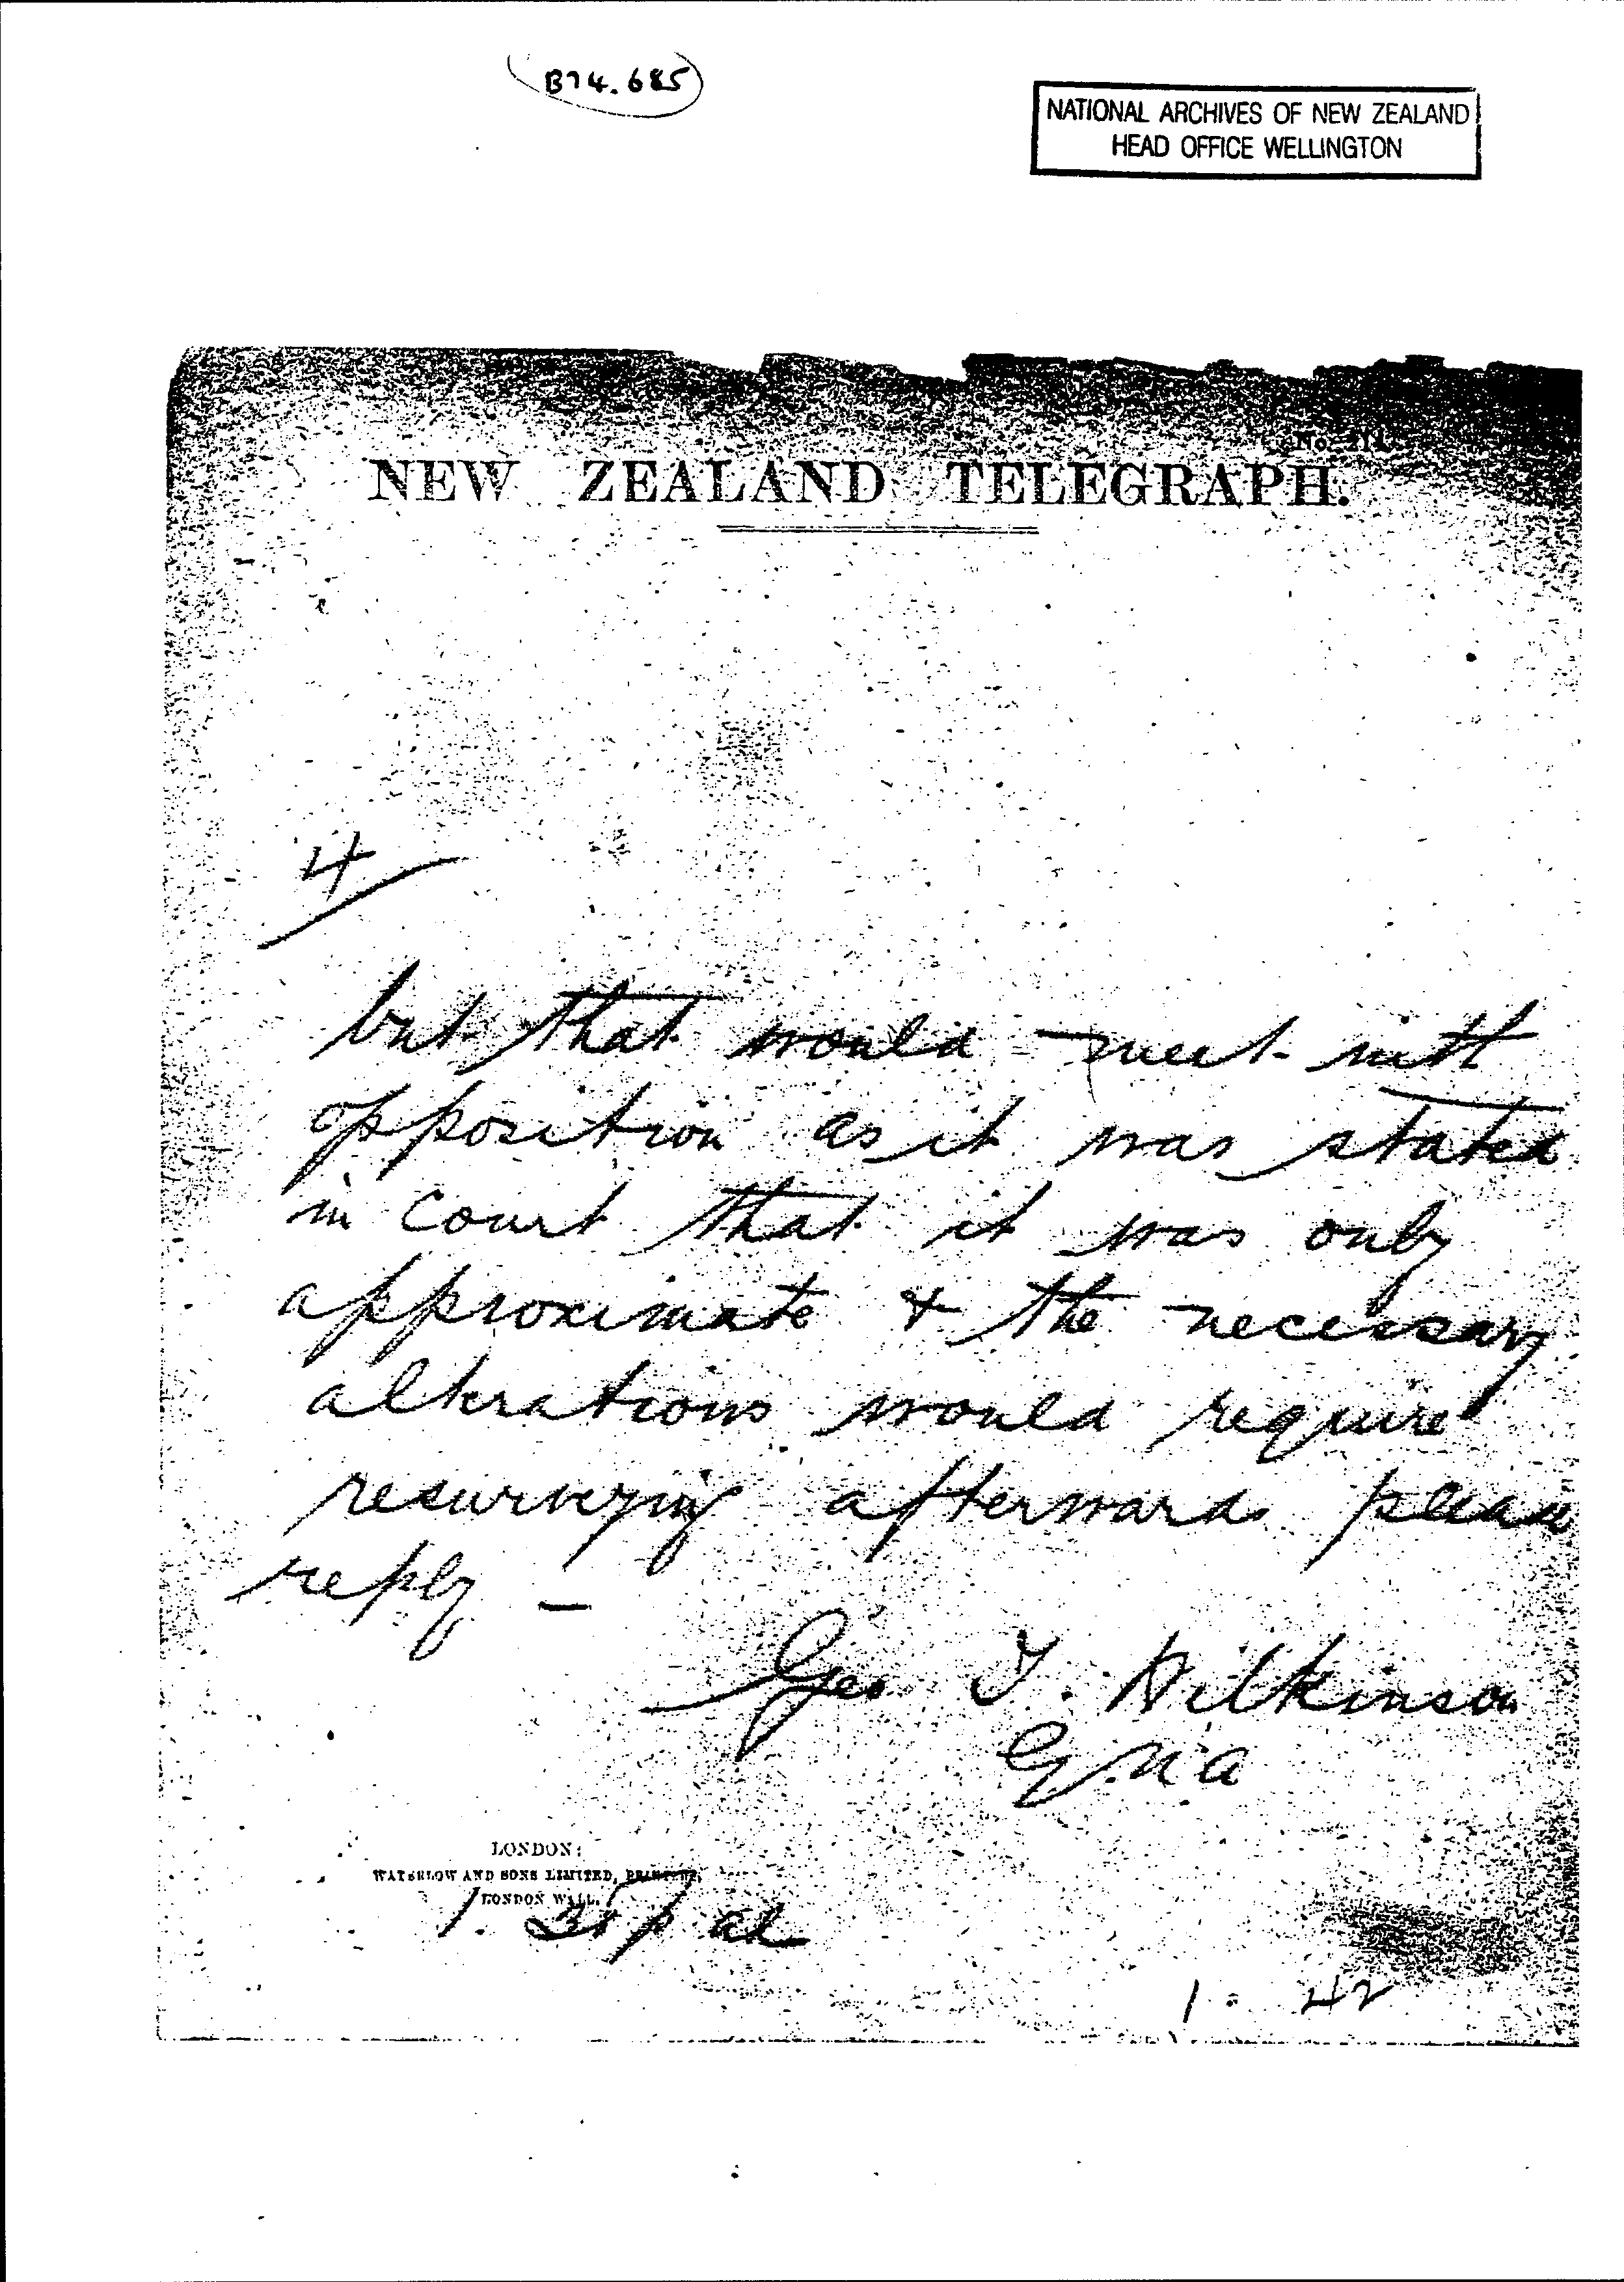 B74.685
NATIONAL ARCHIVES OF NEW ZEALAND
HEAD OFFICE WELLINGTON
No.
NEW ZEALAND TELEGRAPH.
4
but that would meet with
opposition as it was stated
in Court that it was only
approximate & the necessary
alterations would require
resurveying afterwards please
reply —
Geo T. Wilkinson
G.N.A
LONDON:
WATERLOW AND SONS LIMITED, PRINTERS,
LONDON WALL.
1. 42